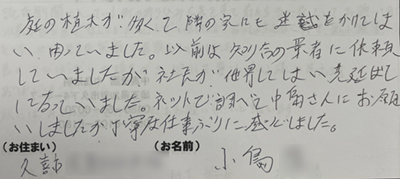 庭の植木が多くて隣の家にも迷惑をかけてしま
い、困っていました。以前は知合の業者に依頼
していましたが、社長が他界してしまい先延ばし
になっていました。ネットで調べて中島さんにお願
いしましたが丁寧な仕事ぶりに感心しました。
(お住まい) (お名前)
久喜 小島